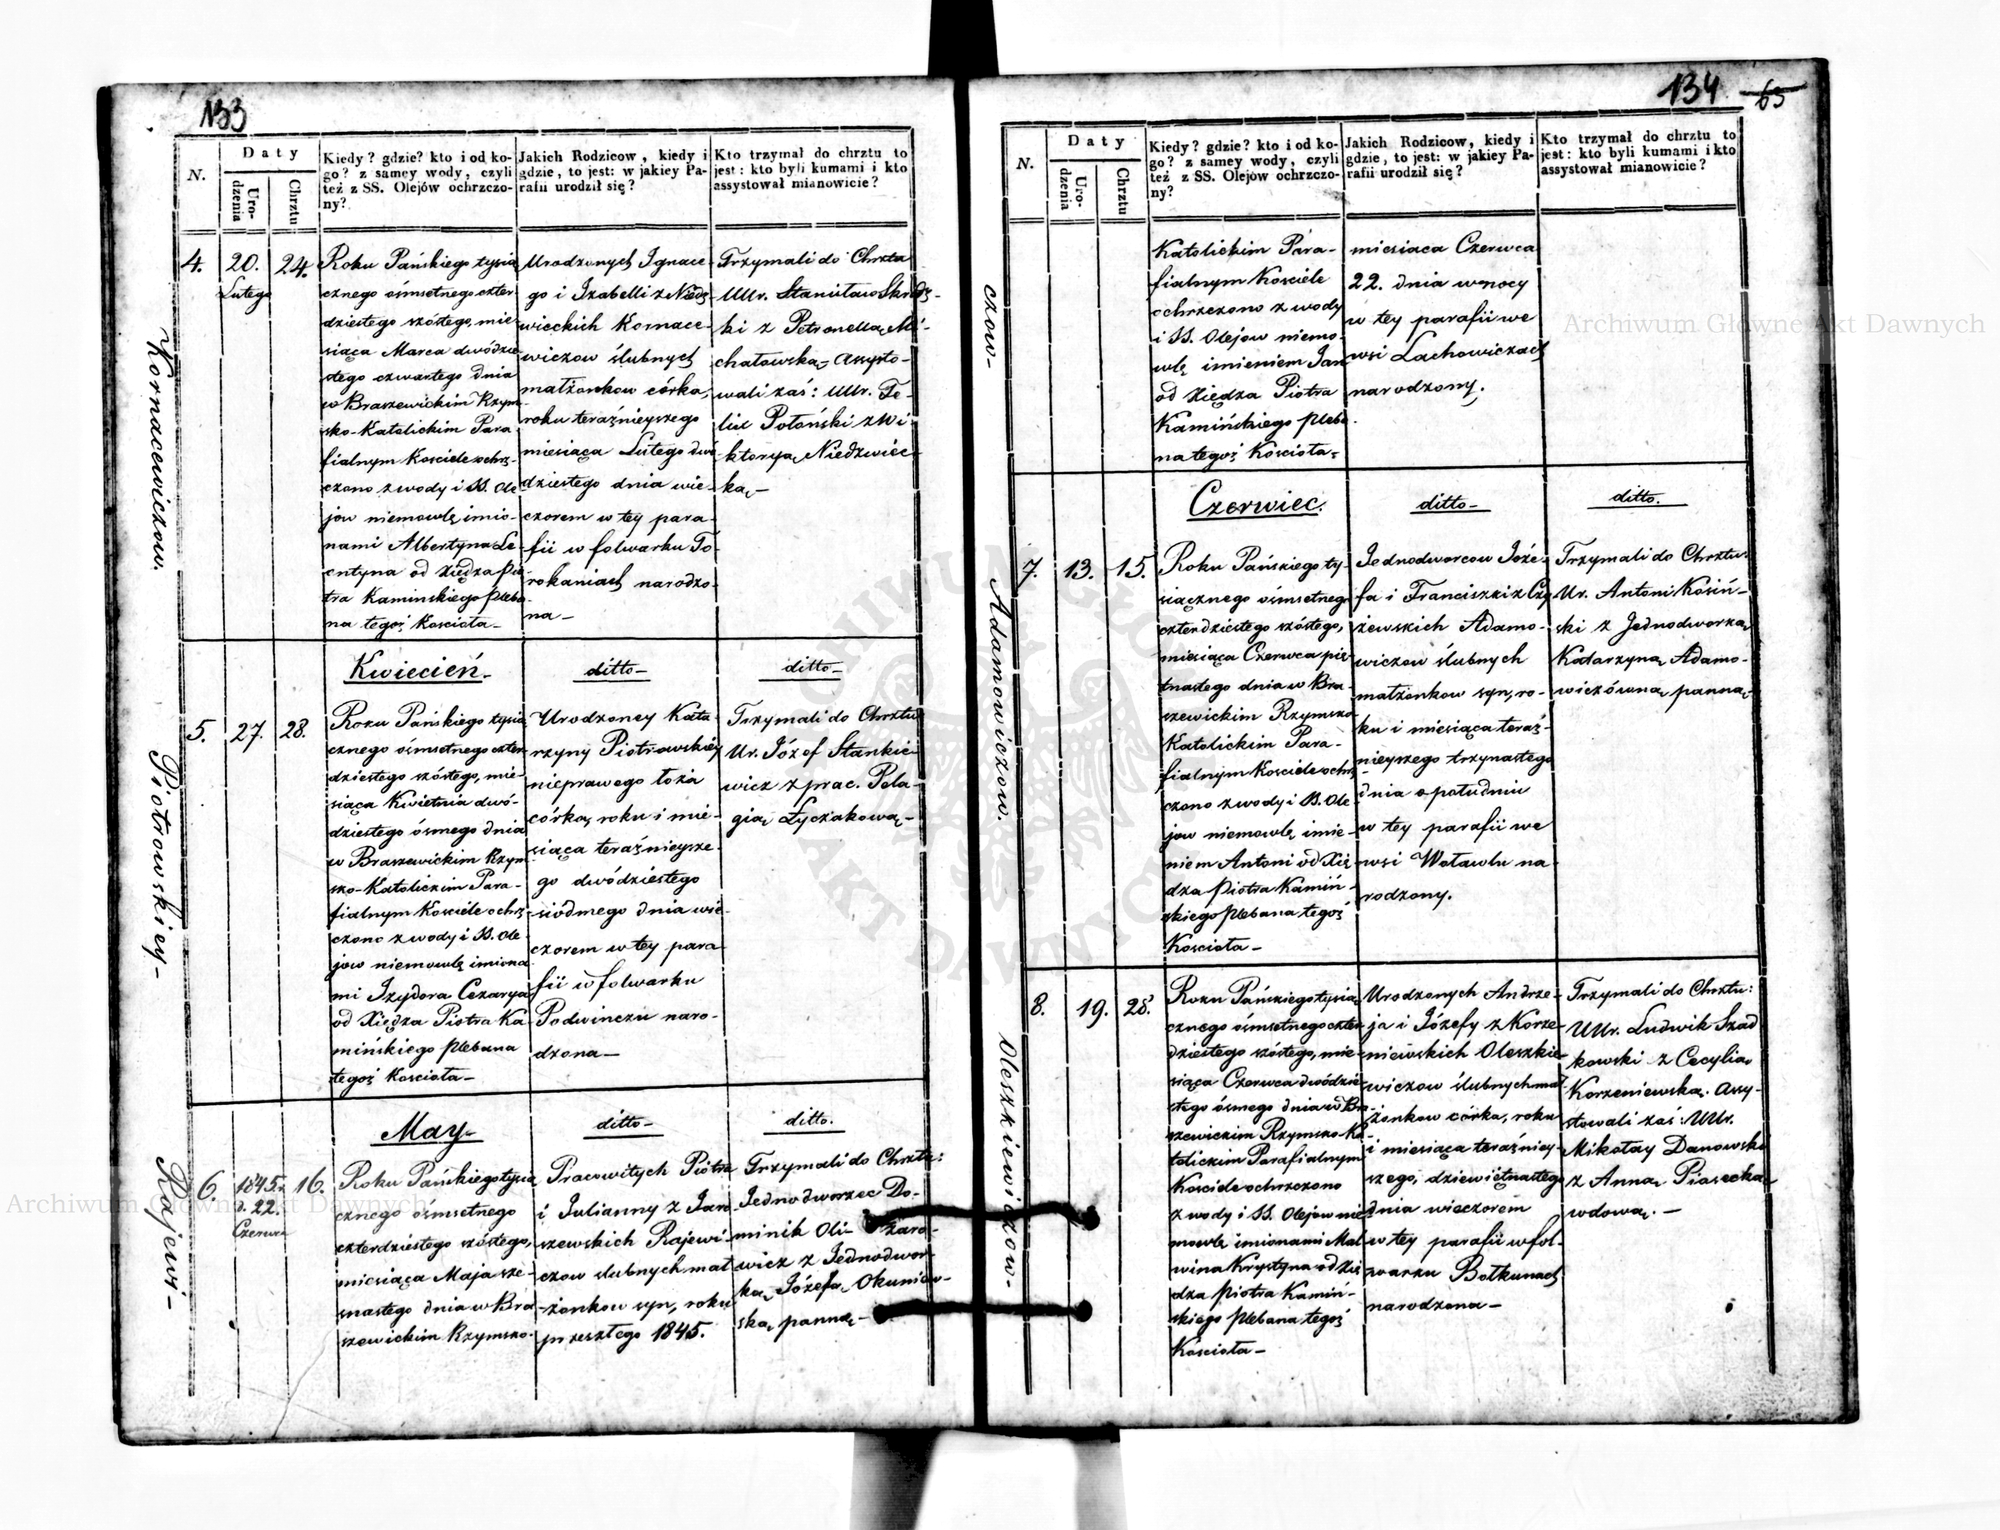 133
N.
Daty
Urodzenia
Chrztu
Kiedy? gdzie? kto i od ko-
go? z samey wody, czyli
też z SS. Olejów ochrzczo-
ny?
Jakich Rodzicow, kiedy i
gdzie, to jest: w jakiey Pa-
rafii urodził się?
Kto trzymał do chrztu to
jest: kto byli kumami i kto
assystował mianowicie?
Kornacewiczow.
4.
20.
Lutego
24.
Roku Pańskiego tysią
cznego ośmsetnego czter-
dziestego szóstego, mie-
siąca Marca dwódzie
stego czwartego dnia
w Braszewickim Rzym-
sko-Katolickim Para
fialnym Kosciele ochrz-
czono z wody i SS. Ole-
jow niemowlę imio-
nami Albertyna Le-
entyna od Xiędza Pio-
tra Kaminskiego Pleba-
na tegoż Kosciola-
Urodzonych Ignace-
go i Izabelli z Niedz-
wieckich Kornace-
wiczow ślubnych
małżonkow córka,
roku teraźnieyszego
miesiąca Lutego dwó-
dziestego dnia wie-
czorem w tey para-
fii w folwarku To-
rokaniach narodzo-
na-
Trzymali do Chrztu
UUr. Stanisław Skirdz-
ki z Petronellą Mi-
chałowską, Assysto-
wali zaś: UUr. Fe-
lix Połoński z Wi-
ktoryą Niedzwiec-
ką-
Kwiecień-
ditto-
ditto-
Piotrowskiey-
5.
27.
28.
Roku Pańskiego tysią
cznego ośmsetnego czter-
dziestego szóstego, mie-
siąca Kwietnia dwó-
dziestego ósmego dnia
w Braszewickim Rzym
sko-Katolickim Para-
fialnym Kosciele ochrz-
czono z wody i SS. Ole
jow niemowlę imiona
mi Izydora Cezarya
od Xiędza Piotra Ka
mińskiego Plebana
tegoż Kosciola-
Urodzoney Kata
rzyny Piotrowskiey
nieprawego łoża
córka, roku i mie-
siąca teraźnieysze-
go dwódziestego
siódmego dnia wie-
czorem w tey para
fii w folwarku
Podwińczu naro-
dzona-
Trzymali do Chrztu
Ur. Józef Stankie-
wicz z prac. Pela-
gią Łyczakową-
May-
ditto-
ditto.
Rajewi-
6.
1845 r.
d. 22.
Czerwca
16.
Roku Pańskiego tysią
cznego ośmsetnego
czterdziestego szóstego,
miesiąca Maja sze-
snastego dnia w Bra
szewickim Rzymsko-
Pracowitych Piotra
i Julianny z Jaro-
szewskich Rajewi-
czow ślubnych mał
żonkow syn, roku
przeszłego 1845.
Trzymali do Chrztu:
Jednodworzec Do-
minik Oli-żaro-
wicz z Jednodwor-
ką Józefą Okuniew-
ską panną-
134
65
N.
Daty
Urodzenia
Chrztu
Kiedy? gdzie? kto i od ko-
go? z samey wody, czyli
też z SS. Olejów ochrzczo-
ny?
Jakich Rodzicow, kiedy i
gdzie, to jest: w jakiey Pa-
rafii urodził się?
Kto trzymał do chrztu to
jest: kto byli kumami i kto
assystował mianowicie?
czow-
Katolickim Para-
fialnym Kosciele
ochrzczono z wody
i SS. Olejow niemo-
wlę imieniem Jan
od Xiędza Piotra
Kamińskiego Pleba-
na tegoż Kosciola-
miesiąca Czerwca
22. dnia w nocy
w tey parafii we
wsi Lachowiczach
narodzony.
Czerwiec.
ditto-
ditto.
Adamowiczow.
7.
13.
15.
Roku Pańskiego ty-
siącznego ośmsetnego
czterdziestego szóstego,
miesiąca Czerwca pię-
tnastego dnia w Bra-
szewickim Rzymsko
Katolickim Para-
fialnym Kosciele ochrz
czono z wody i SS. Ole
jow niemowlę imie-
niem Antoni od Xię-
dza Piotra Kamiń-
skiego Plebana tegoż
Kosciola-
Jednodworcow Józe-
fa i Franciszki z Czy
żewskich Adamo-
wiczow ślubnych
małżonkow syn, ro-
ku i miesiąca teraź-
nieyszego trzynastego
dnia o południu
w tey parafii we
wsi Wołowlu na-
rodzony.
Trzymali do Chrztu:
Ur. Antoni Kosiń-
ski z Jednodworką
Katarzyną Adamo-
wiczówną panną-
Oleszkiewiczow-
8.
19.
28.
Roku Pańskiego tysią
cznego ośmsetnego czter
dziestego szóstego, mie-
siąca Czerwca dwódzie-
stego ósmego dnia w Bra
szewickim Rzymsko-Ka-
tolickim Parafialnym
Kosciele ochrzczono
z wody i SS. Olejow nie-
mowlę imionami Mal
wina Krystyna od Xię
dza Piotra Kamiń-
skiego Plebana tegoż
Kosciola-
Urodzonych Andrze-
ja i Józefy z Korze-
niewskich Oleszkie-
wiczow ślubnych mał
żonkow córka, roku
i miesiąca teraźniey-
szego, dziewiętnastego
dnia wieczorem
w tey parafii w fol-
warku Bołkunach
narodzona-
Trzymali do Chrztu:
UUr. Ludwik Szad
kowski z Cecylią
Korzeniewską. Assy-
stowali zaś: UUr.
Mikołay Danowski
z Anną Piasecką
wdową.-
Archiwum Główne Akt Dawnych
Archiwum Główne Akt Dawnych